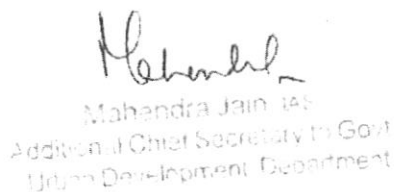 Mahendra
Mahendra Jain IAS
Additional Chief Secretary to Govt
Urban Development Department